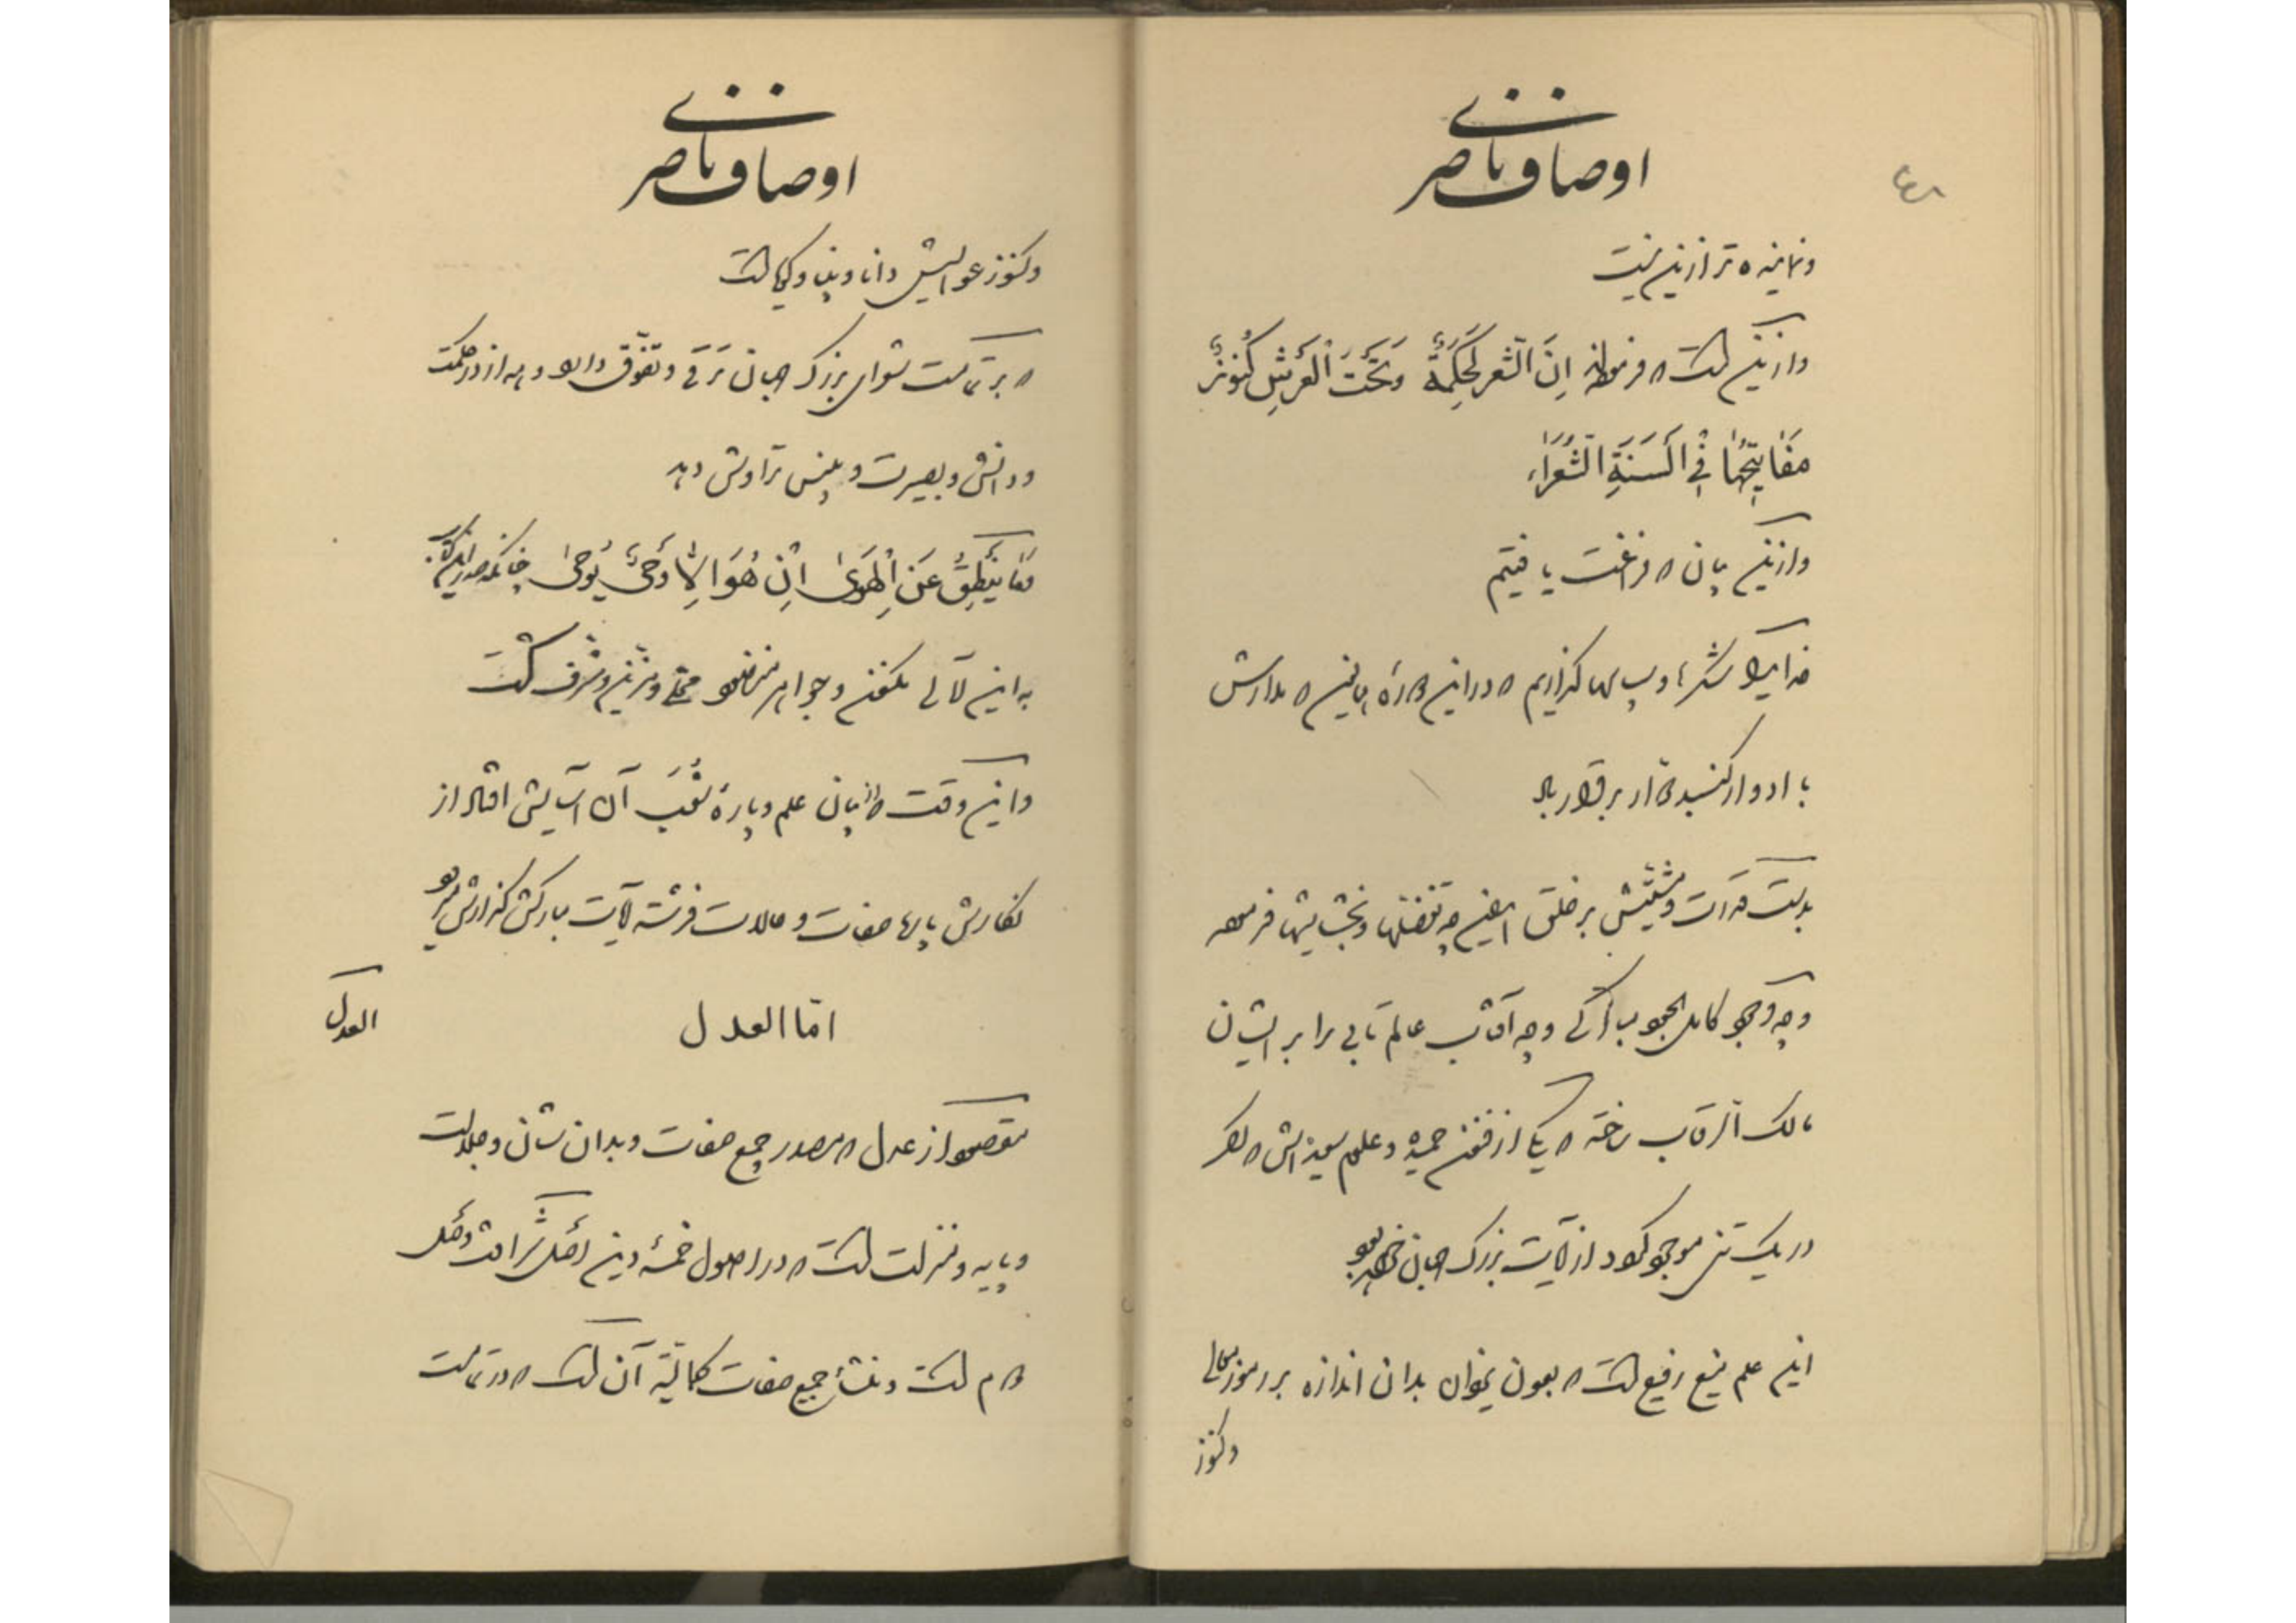 اوصاف ناصری
۴۸
و نماینده تر ازین نیست
و ازینست که فرموده‌اند اِنَّ الشِّعْرَ لَحِکْمَةٌ وَتَحْتَ الْعَرْشِ کُنُوزٌ
مَفَاتِیحُهَا فِی اَلْسِنَةِ الشُّعَرَاء
و ازین بیان که فراغت یافتیم
خدایرا شکرها و سپاسها گذاریم که در این
با ادوار گنبد دوار برقرار باد
بدست قدرت و مشیتش بر خلق زمین چه تفضلها و بخشایشها فرموده
و چه وجود کامل و چه آفتاب عالم تابی را بر ایشان
مالک الرقاب ساخته که یکی از فنون حمیده و علوم سعیده‌اش که اگر
در یک تن موجود گردد از آیات بزرگ جهان خواهد بود
این علم منیع رفیع است که بعون یزدان بدان اندازه بر رموز معانی
و کنوز
اوصاف ناصری
و کنوز عوالیش دانا و بینا و کیاست
که بر تمامت شعرای بزرگ جهان ترقی و تفوق دارد و همه از در حکمت
و دانش و بصیرت و بینش تراوش دهد
مَا یَنْطِقُ عَنِ الْهَوىٰ اِنْ هُوَ اِلَّا وَحْیٌ یُوحىٰ چنانکه صدر این کتاب
به این لآلی مکنون و جواهر منضود محلی و مزین و مشرف گشت
و این وقت که از بیان علم و پارهٔ شعب آن آسایش افتاد از
نگارش پارهای صفات و حالات فرشته آیات مبارکش گزارش میرود
العدل
امّا العدل
مقصود از عدل که مصدر جمیع صفات و بدان شان و جلالت
و پایه و منزلت است که در اصول خمسهٔ دین اصل شرافت و فصل
دوم است و منشأ جمیع صفات کمالیّه آن است که در تمامت